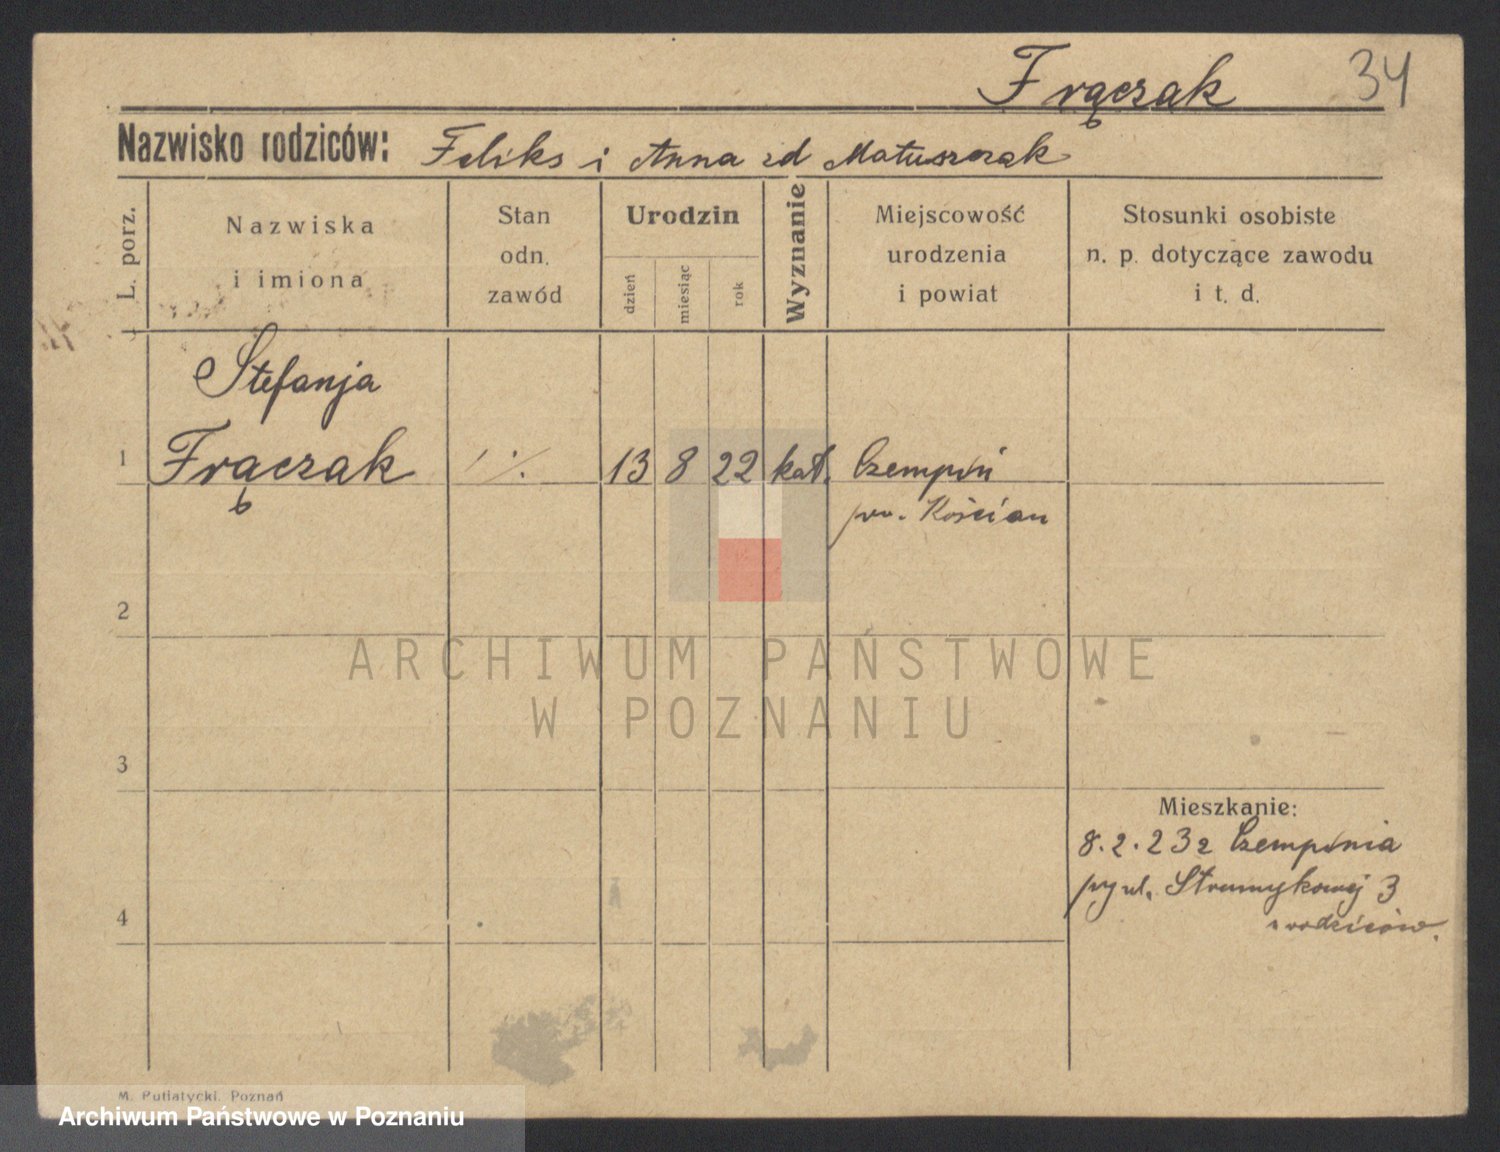 Frączak 34
Nazwisko rodziców: Feliks i Anna zd Matuszczak
L. porz.
Nazwiska
i imiona
Stan
odn.
zawód
Urodzin
dzień
miesiąc
rok
Wyznanie
Miejscowość
urodzenia
i powiat
Stosunki osobiste
n. p. dotyczące zawodu
i t. d.
Stefanja
1 Frączak 13 8 22 kat. Czempiń
pow. Kościan
2
ARCHIWUM PAŃSTWOWE
W POZNANIU
3
Mieszkanie:
8.2.23 z Czempinia
ul. Strumykowej 3
rodziców.
4
M. Putiatycki, Poznań
Archiwum Państwowe w Poznaniu